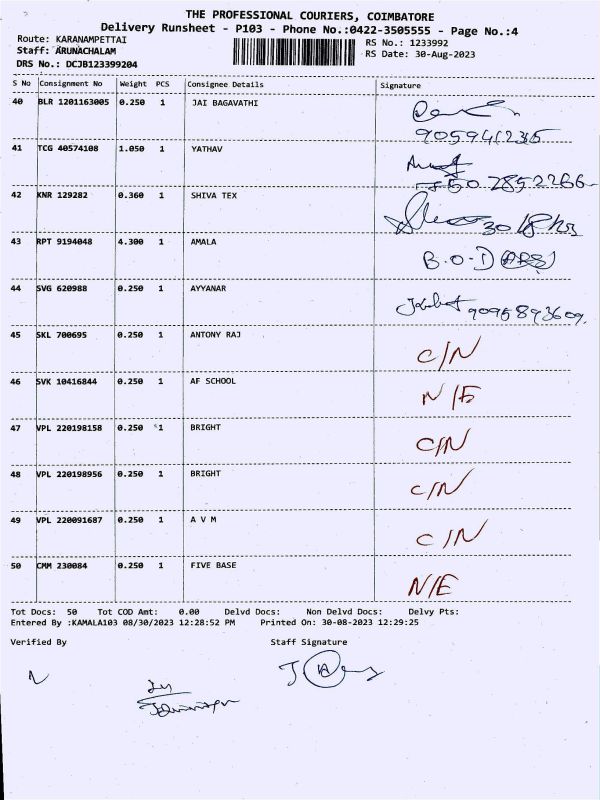 THE PROFESSIONAL COURIERS, COIMBATORE
Delivery Runsheet - P103 - Phone No.:0422-3505555 - Page No.:4
Route: KARANAMPETTAI
RS No.: 1233992
Staff: ARUNACHALAM
RS Date: 30-Aug-2023
DRS No.: DCJB123399204
S No Consignment No Weight PCS Consignee Details Signature
40 BLR 1201163005 0.250 1 JAI BAGAVATHI
9059441235
41 TCG 40574108 1.050 1 YATHAV
7502852266
42 KNR 129282 0.360 1 SHIVA TEX
30/8
43 RPT 9194048 4.300 1 AMALA
B.O.D
44 SVG 620988 0.250 1 AYYANAR
9095893609
45 SKL 700695 0.250 1 ANTONY RAJ C/N
46 SVK 10416844 0.250 1 AF SCHOOL N/E
47 VPL 220198158 0.250 1 BRIGHT C/N
48 VPL 220198956 0.250 1 BRIGHT C/N
49 VPL 220091687 0.250 1 A V M C/N
50 CMM 230084 0.250 1 FIVE BASE N/E
Tot Docs: 50 Tot COD Amt: 0.00 Delvd Docs: Non Delvd Docs: Delvy Pts:
Entered By :KAMALA103 08/30/2023 12:28:52 PM Printed On: 30-08-2023 12:29:25
Verified By Staff Signature